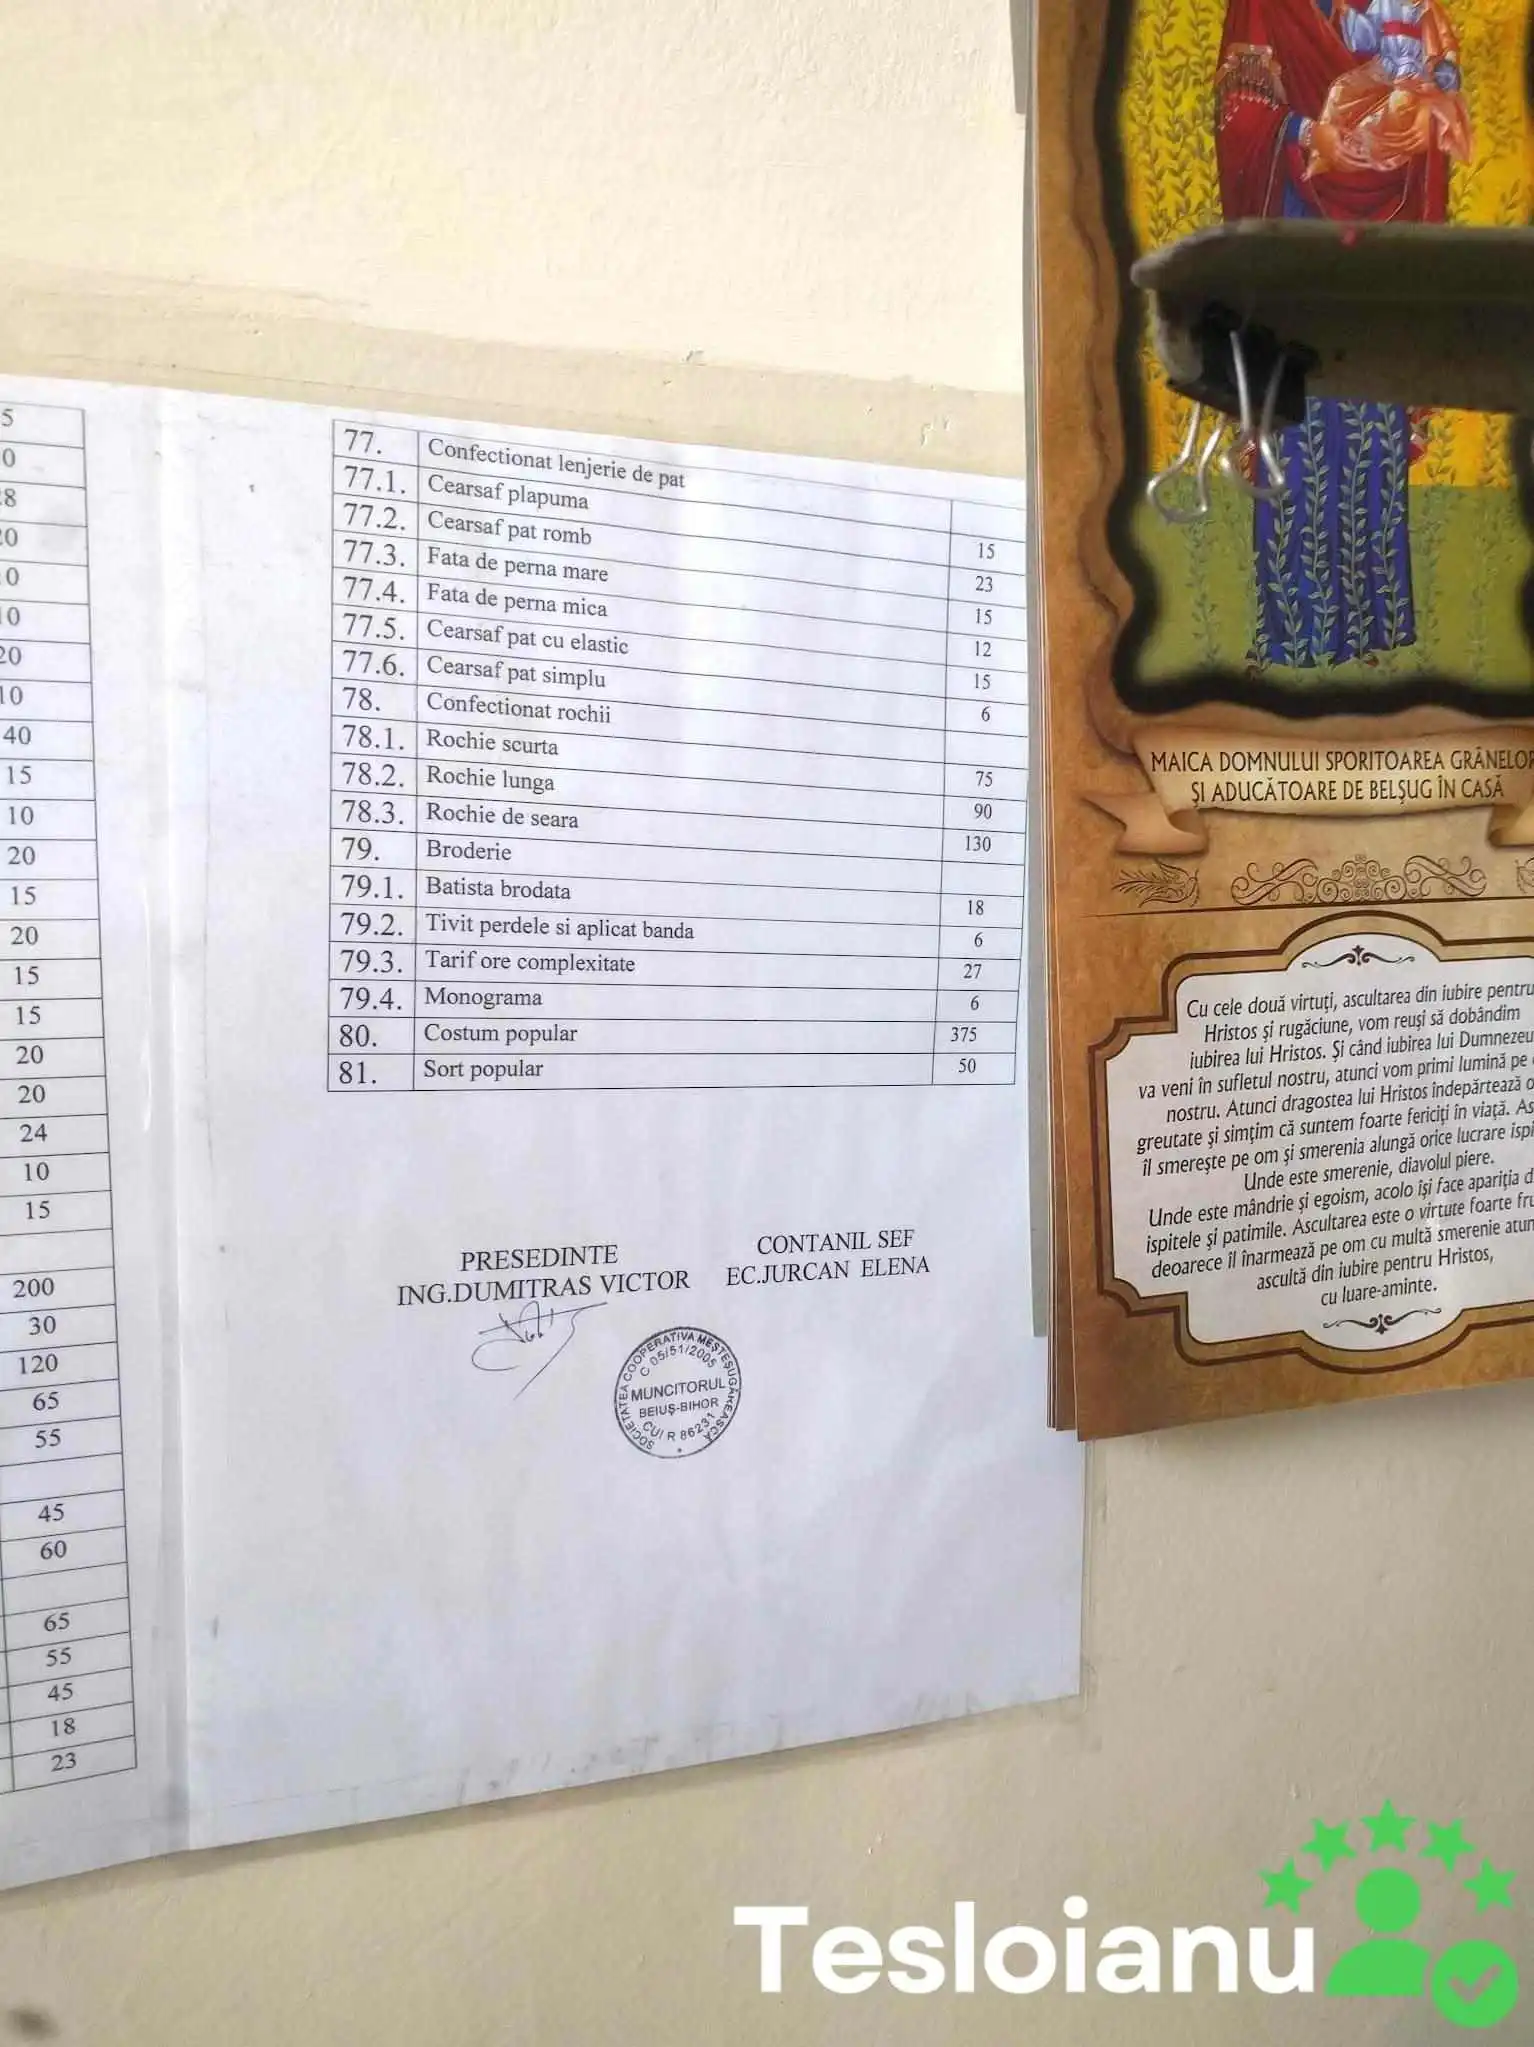 5
0
28
20
10
10
20
10
40
15
10
20
15
20
15
15
20
20
24
10
15
200
30
120
65
55
45
60
65
55
45
18
23
77. Confectionat lenjerie de pat
77.1. Cearsaf plapuma 15
77.2. Cearsaf pat romb 23
77.3. Fata de perna mare 15
77.4. Fata de perna mica 12
77.5. Cearsaf pat cu elastic 15
77.6. Cearsaf pat simplu 6
78. Confectionat rochii
78.1. Rochie scurta 75
78.2. Rochie lunga 90
78.3. Rochie de seara 130
79. Broderie
79.1. Batista brodata 18
79.2. Tivit perdele si aplicat banda 6
79.3. Tarif ore complexitate 27
79.4. Monograma 6
80. Costum popular 375
81. Sort popular 50
PRESEDINTE
ING.DUMITRAS VICTOR
CONTANIL SEF
EC.JURCAN ELENA
SOCIETATEA COOPERATIVA MEȘTEȘUGĂREASCĂ
C 05/51/2005
MUNCITORUL
BEIUȘ-BIHOR
CUI R 86231
MAICA DOMNULUI SPORITOAREA GRÂNELOR
ȘI ADUCĂTOARE DE BELȘUG ÎN CASĂ
Cu cele două virtuți, ascultarea din iubire pentru
Hristos și rugăciune, vom reuși să dobândim
iubirea lui Hristos. Și când iubirea lui Dumnezeu
va veni în sufletul nostru, atunci vom primi lumină pe
nostru. Atunci dragostea lui Hristos îndepărtează o
greutate și simțim că suntem foarte fericiți în viață. As
îl smerește pe om și smerenia alungă orice lucrare ispi
Unde este smerenie, diavolul piere.
Unde este mândrie și egoism, acolo își face apariția d
ispitele și patimile. Ascultarea este o virtute foarte fru
deoarece îl înarmează pe om cu multă smerenie atun
ascultă din iubire pentru Hristos,
cu luare-aminte.
Tesloianu